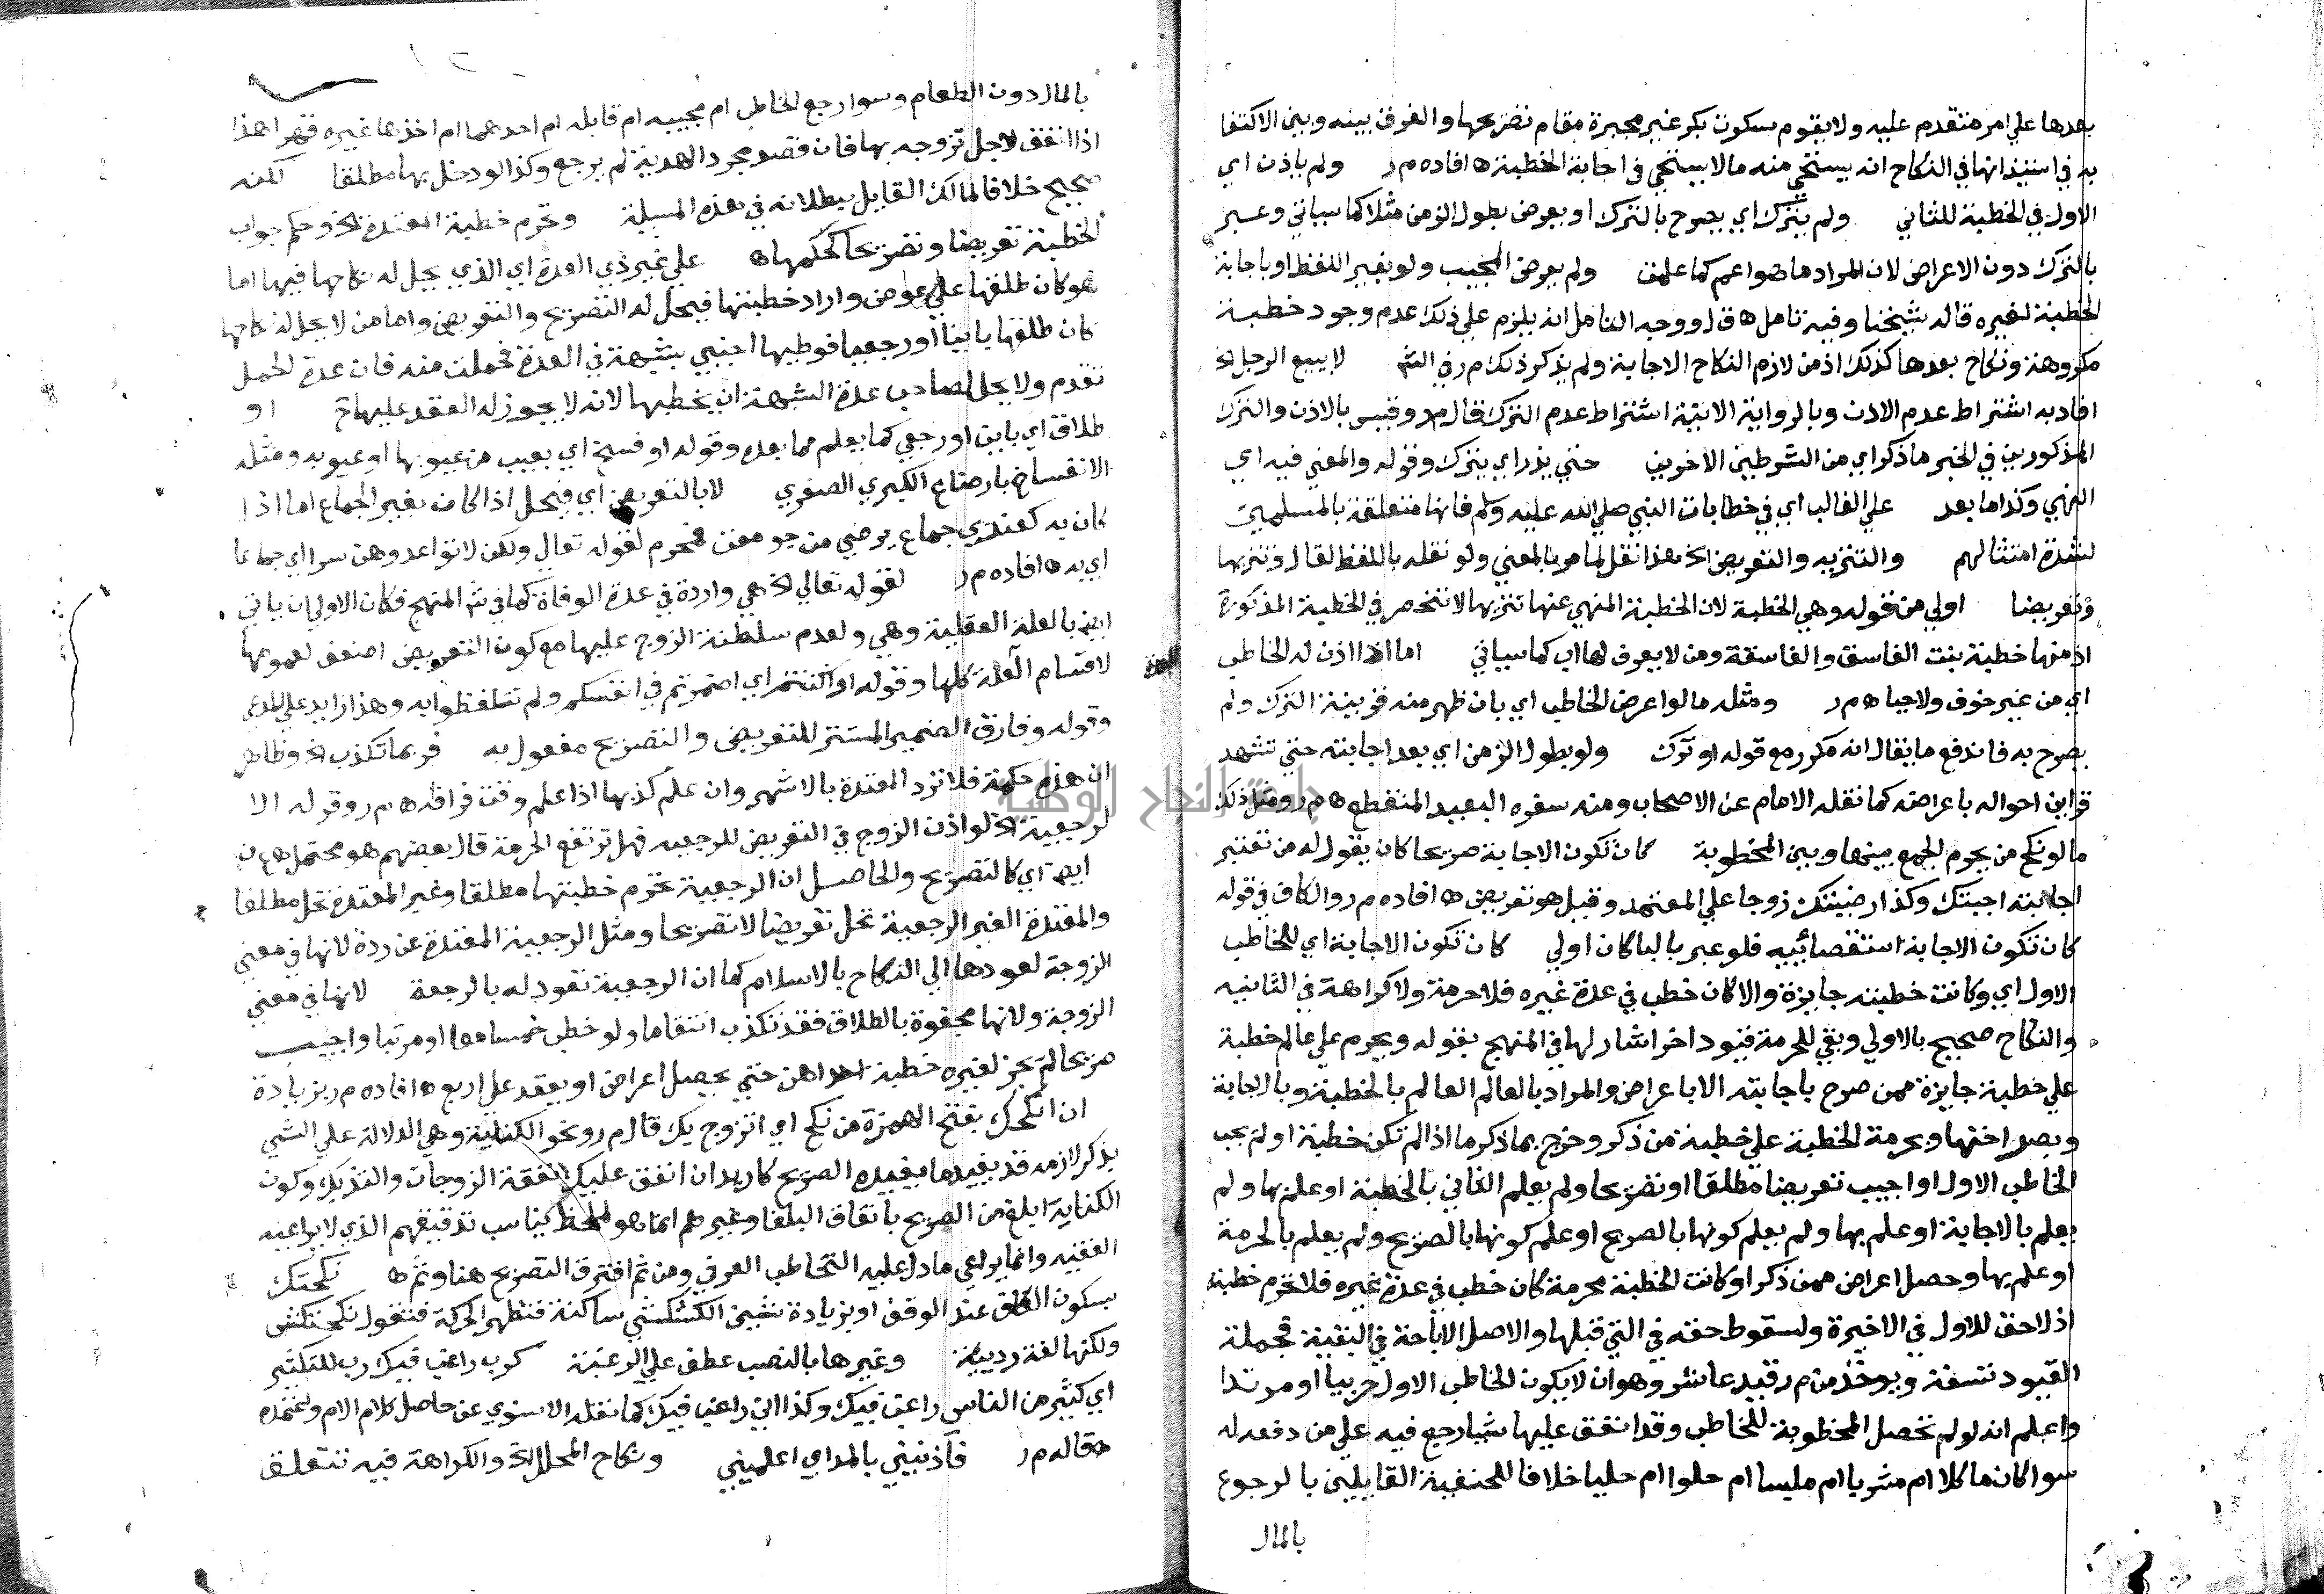 بعدها علي امر متقدم عليه ولا يقوم سكوت بكر غير مجبرة مقام تصريحها والفرق بينه وبين الاكتفا
به في استيذانها في النكاح انه يستحي منه مالا يستحي في اجابة الخطبة ه افاده م ر ولم ياذن اي
الاول في الخطبة للثاني ولم يترك اي يصرح بالترك او يعرض بطول الزمن مثلا كما سياتي وعبر
بالترك دون الاعراض لان المراد ما هو اعم كما علمت ولم يعرض المجيب ولو بغير اللفظ او باجابة
الخطبة لغيره قاله شيخنا وفيه تامل ه ق ل ووجه التامل انه يلزم علي ذلك عدم وجود خطبة
مكروهة ونكاح بعدها كذلك اذ من لازم النكاح الاجابة ولم يذكر ذلك م ر في الش لا يبيع الرجل الخ
افاد به اشتراط عدم الاذن وبالرواية الاتية اشتراط عدم الترك قال م د وقيس بالاذن والترك
المذكورين في الخبر ما ذكر اي من الشرطين الاخرين حتي يذر اي يترك وقوله والمعني فيه اي
النهي وكذا ما بعد علي الغالب اي في خطابات النبي صلي الله عليه وسلم فانها متعلقة بالمسلمين
لشدة امتثالهم والتنزيه والتعريض الخ هذا نقل لما مر بالمعني ولو نقله باللفظ لقال وتنزيها
وتعريضا اولي من قوله وهي الخطبة لان الخطبة المنهي عنها تنزيها لا تنحصر في الخطبة المذكورة
اذ منها خطبة بنت الفاسق والفاسقة ومن لا يعرف لها اب كما سياتي اما اذا اذن له الخاطب
اي من غير خوف ولا حيا ه م ر ومثله ما لو اعرض الخاطب اي بان ظهر منه قرينة الترك ولم
يصرح به فاندفع ما يقال انه مكرر مع قوله او ترك ولو بطول الزمن اي بعد اجابته حتي تشهد
قراين احواله باعراضه كما نقله الامام عن الاصحاب ومنه سفره البعيد المنقطع ه م ر ومثل ذلك
ما لو نكح من يحرم الجمع بينها وبين المخطوبة كان تكون الاجابة صريحا كان يقول له من تعتبر
اجابته اجبتك وكذا رضيتك زوجا علي المعتمد وقيل هو تعريض ه افاده م ر والكاف في قوله
كان تكون الاجابة استقصائيه فلو عبر بالبا كان اولي كان تكون الاجابة اي للخاطب
الاول اي وكانت خطبته جايزة والا كان خطب في عدة غيره فلا حرمة ولا كراهة في الثانيه
والنكاح صحيح بالاولي وبقي للحرمة قيود اخر اشار لها في المنهج بقوله ويحرم علي عالم خطبة
علي خطبة جايزة ممن صرح باجابته الا باعراض والمراد بالعالم العالم بالخطبة وبالاجابة
وبصراحتها وبحرمة الخطبة علي خطبة من ذكر وخرج بما ذكر ما اذا لم تكن خطبة او لم يجب
الخاطب الاول او اجيب تعريضا مطلقا او تصريحا ولم يعلم الثاني بالخطبة او علم بها ولم
يعلم بالاجابة او علم بها ولم يعلم كونها بالصريح او علم كونها بالصريح ولم يعلم بالحرمة
او علم بها وحصل اعراض ممن ذكر او كانت الخطبة محرمة كان خطب في عدة غيره فلا تحرم خطبة
اذ لا حق للاول في الاخيرة ولسقوط حقه في التي قبلها والاصل الاباحة في البقية فجملة
القيود تسعة ويوخذ من م ر قيد عاشر وهو ان لا يكون الخاطب الاول حربيا او مرتدا
واعلم انه لو لم تحصل المخطوبة للخاطب وقد انفق عليها شيا رجع فيه علي من دفعه له
سوا كان ماكلا ام مشربا ام ملبسا ام حلوا ام حليا خلافا للحنفية القايلين بالرجوع
بالمال
بالمال دون الطعام وسوا رجع الخاطب ام مجيبه ام قابله ام احدهما ام اخذها غيره قهرا هذا
اذا انفق لاجل تزوجه بها فان قصد مجرد الهدية لم يرجع وكذا لو دخل بها مطلقا لكنه
صحيح خلافا لمالك القايل ببطلانه في هذه المسيلة وتحرم خطبة المعتدة الخ وحكم جواب
الخطبة تعريضا وتصريحا كحكمها ه علي غير ذي العدة اي الذي يحل له نكاحها فيها اما
هو كان طلقها علي عوض واراد خطبتها فيحل له التصريح والتعريض واما من لا يحل له نكاحها
كان طلقها باينا او رجعيا فوطيها اجنبي بشبهة في العدة فحملت منه فان عدة الحمل
تقدم ولا يحل لصاحب عدة الشبهة ان يخطبها لانه لا يجوز له العقد عليها ح او
طلاق اي باين او رجعي كما يعلم مما بعده وقوله او فسخ اي بعيب من عيوبها او عيوبه ومثله
الانفساخ بارضاع الكبري الصغري لا بالتعريض اي فيحل اذا كان بغير الجماع اما اذا
كان به كعندي جماع يرضي من جومعت فمحرم لقوله تعالي ولكن لا تواعدوهن سرا اي جماعا
اي به ه افاده م ر لقوله تعالي الخ هي واردة في عدة الوفاة كما في ش المنهج فكان الاولي ان ياتي
ايض بالعلة العقلية وهي ولعدم سلطنة الزوج عليها مع كون التعريض اضعف لعمومها
لاقسام العدة كلها وقوله او اكننتم اي اضمرتم في انفسكم ولم تتلفظوا به وهذا زايد علي المدعي
العدة
وقوله وفارق الضمير المستتر للتعريض والتصريح مفعول به فربما تكذب الخ وظاهر
ان هذه حكمة فلا ترد المعتدة بالاشهر وان علم كذبها اذا علم وقت فراقه ه م ر وقوله الا
لرجعية الخ لو اذن الزوج في التعريض للرجعيه فهل ترتفع الحرمة قال بعضهم هو محتمل ه ع ن
ايض اي كالتصريح والحاصل ان الرجعية تحرم خطبتها مطلقا وغير المعتدة تحل مطلقا
والمعتدة الغير الرجعية تحل تعريضا لا تصريحا ومثل الرجعية المعتدة عن ردة لانها في معني
الزوجة لعودها الي النكاح بالاسلام كما ان الرجعية تعود له بالرجعة لانها في معني
الزوجة ولانها مجفوة بالطلاق فقد تكذب انتقاما ولو خطب خمسا معا او مرتبا واجيب
صريحا لم يجز لغيره خطبة احداهن حتي يحصل اعراض او يعقد علي اربع ه افاده م ر بزيادة
ان انكحك بفتح الهمزة من نكح اي اتزوج بك قال م ر ونحو الكناية وهي الدلالة علي الشي
بذكر لازمه قد يفيد ما يفيده الصريح كاريد ان انفق عليك نفقة الزوجات والتذ بك وكون
الكناية ابلغ من الصريح باتفاق البلغا وغيرهم انما هو لملحظ يناسب تدقيقهم الذي لا يراعيه
الفقيه وانما يراعي ما دل عليه التخاطب العرفي ومن ثم افترق التصريح هنا وثم ه نكحتك
بسكون الكاف عند الوقف او بزيادة شين الكشكشي ساكنة فتظهر الحركة فتقول نكحتكش
ولكنها لغة رديية وغيرها بالنصب عطف علي الرغبة كرب راغب فيك رب للتكثير
اي كثير من الناس راغب فيك وكذا اني راغب فيك كما نقله الاسنوي عن حاصل كلام الام واعتمده
ه قاله م ر فآذنيني بالمد اي اعلميني ونكاح المحلل الخ والكراهة فيه تتعلق
جامعة النجاح الوطنية